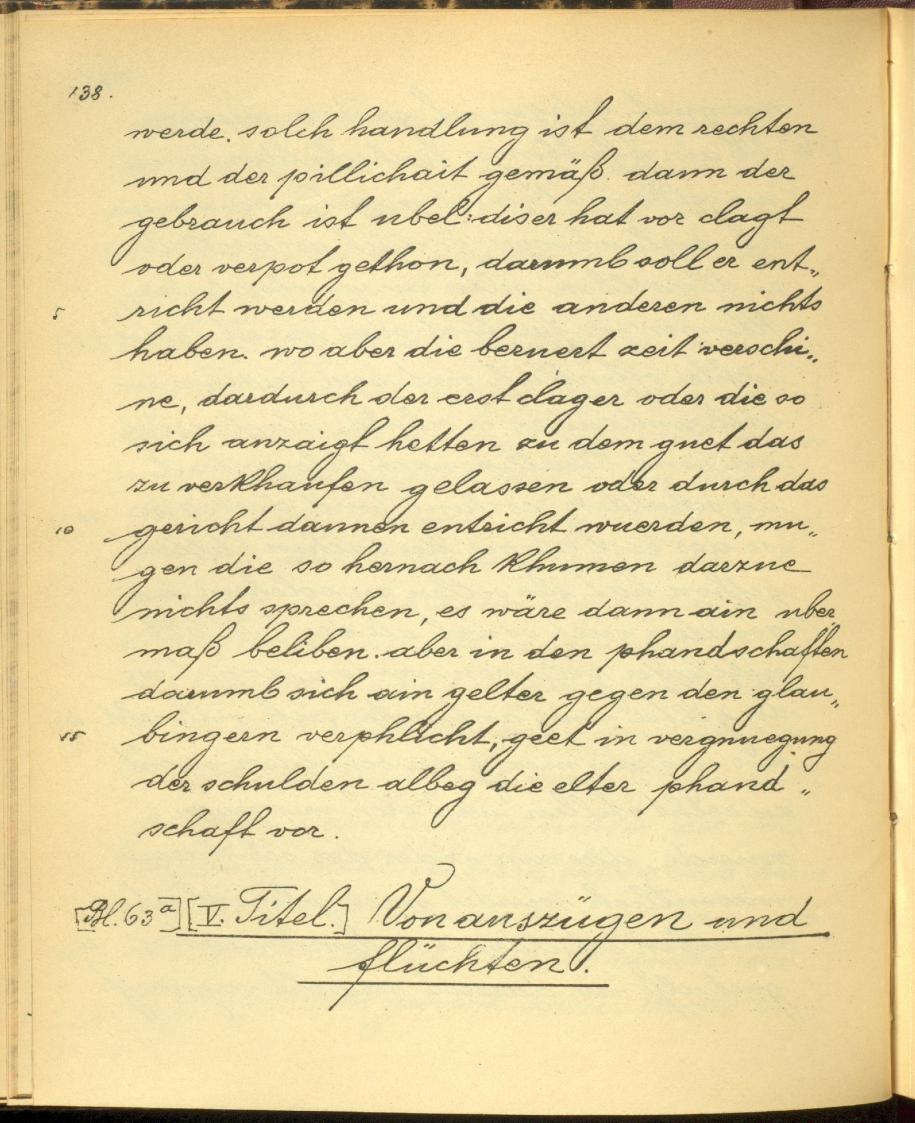 138.
werde. solch handlung ist dem rechten
und der pillichait gemäß. dann der
gebrauch ist ubel: diser hat vor clagt
oder verpot gethon, darumb soll er ent„
5 richt werden und die anderen nichts
haben. wo aber die beruert zeit verschi„
ne, dardurch der erst clager oder die so
sich anzaigt hetten zu dem guet das
zu verkhaufen gelassen oder durch das
10 gericht dannen enteicht wuerden, mu„
gen die so hernach khumen darzue
nichts sprechen, es wäre dann ain uber
maß beliben. aber in den phandschaften
darumb sich ain gelter gegen den glau„
15 bingern verphlicht, geet in vergnuegung
der schulden albeg die elter phand„
schaft vor.
[Bl. 63a] [V. Titel.] Von auszügen und
flüchten.